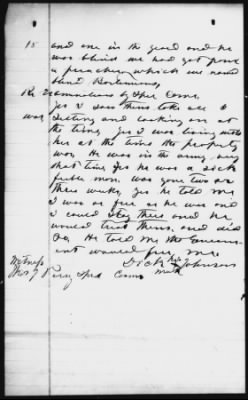 15 and one in the yard and he
was blind we had got from
a preacher which we named
Re Examination by Spec Com.
Yes I saw them take all I
was sitting and looking on at
the time, Yes I was living with
her at the time the property
was. He was in the army
that time Yes he was a sick
feeble man, was gone two or
three weeks, Yes he told me
I was as free as he was and
I could stay there and he
would treat them, and did
so, He told me the Govern
ent would free me
Dick his X Johnson
mark
Witness
Spec Com